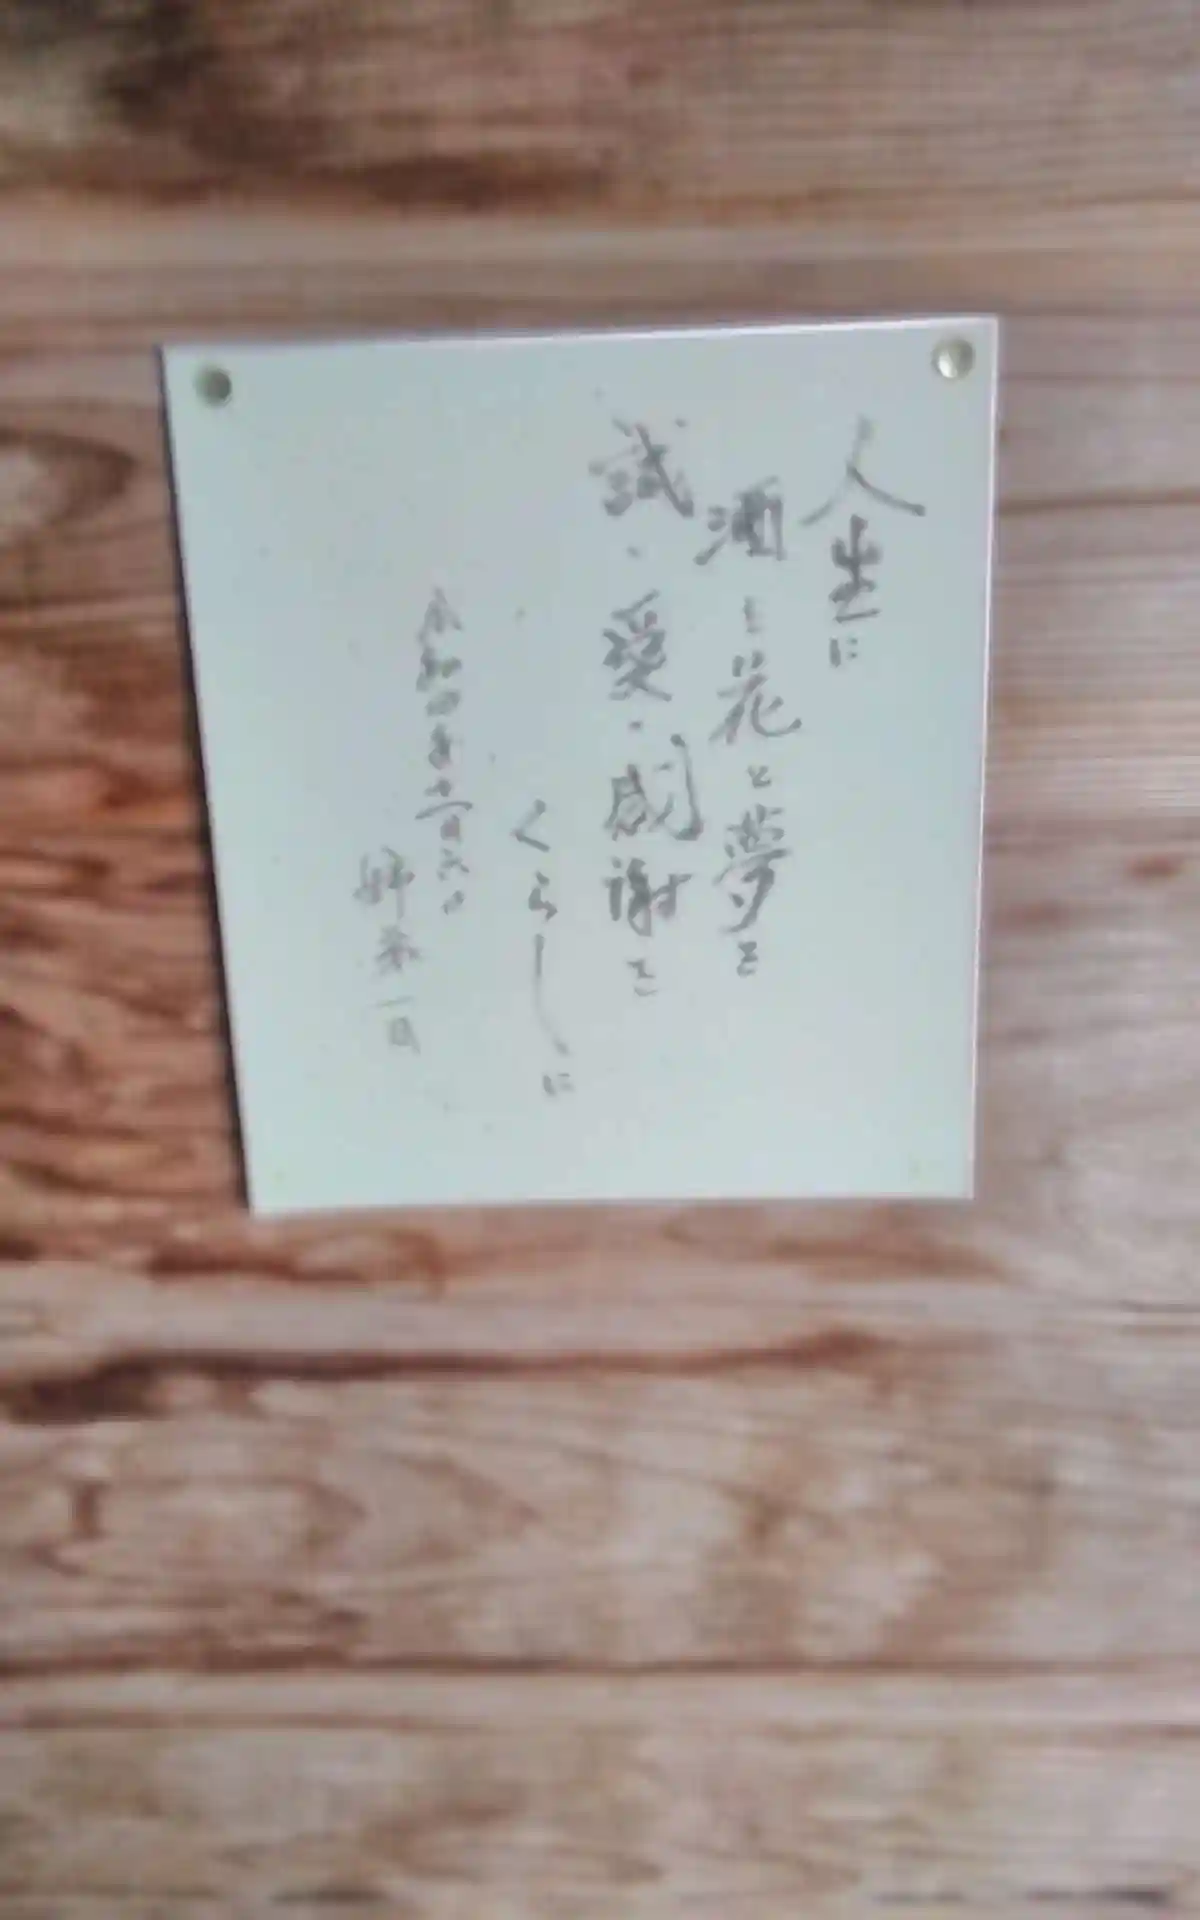 人生に
酒と花と夢を
誠・愛・感謝を
くらしに
令和四年十一月六日